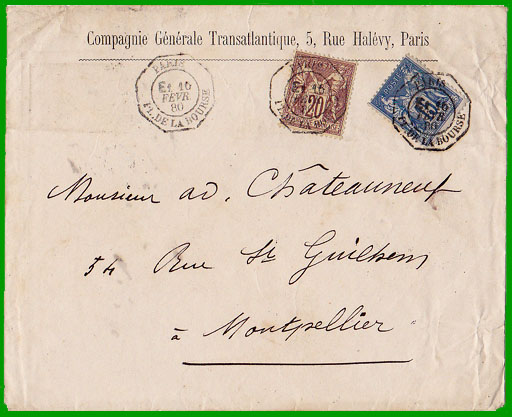 Compagnie Générale Transatlantique, 5, Rue Halévy, Paris
PARIS
E1 16
FEVR
80
Pl. DE LA BOURSE
PARIS
E1 16
20
80
Pl. DE LA BOURSE
PARIS
E1 16
80
Pl. DE LA BOURSE
Monsieur ad. Châteauneuf
54 Rue St Guilhem
à Montpellier